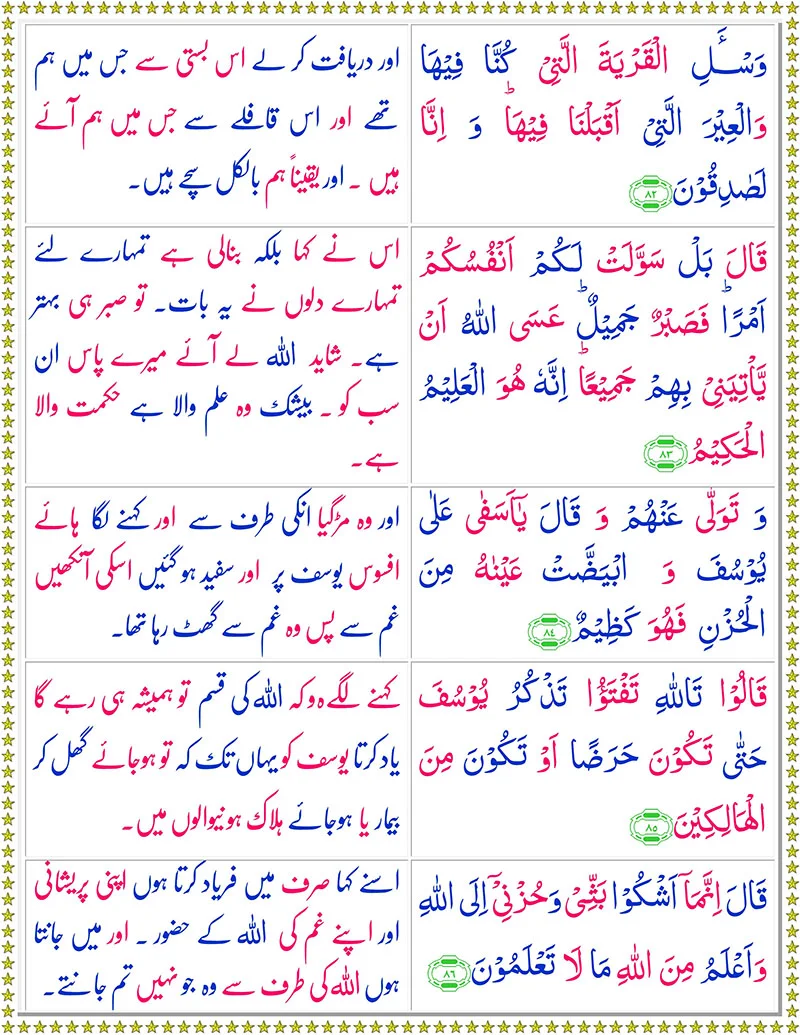 وَسْـَٔلِ الْقَرْيَةَ الَّتِیْ كُنَّا فِيْهَا
وَالْعِيْرَ الَّتِیْۤ اَقْبَلْنَا فِيْهَاؕ وَ اِنَّا
لَصٰدِقُوْنَ ﴿۸۲﴾
اور دریافت کر لے اس بستی سے جس میں ہم
تھے اور اس قافلے سے جس میں ہم آئے
ہیں ۔ اور یقیناً ہم بالکل سچے ہیں۔
قَالَ بَلْ سَوَّلَتْ لَكُمْ اَنْفُسُكُمْ
اَمْرًاؕ فَصَبْرٌ جَمِيْلٌؕ عَسَى اللهُ اَنْ
يَّاْتِيَنِیْ بِهِمْ جَمِيْعًاؕ اِنَّهٗ هُوَ الْعَلِيْمُ
الْحَكِيْمُ ﴿۸۳﴾
اس نے کہا بلکہ بنالی ہے تمہارے لئے
تمہارے دلوں نے یہ بات۔ تو صبر ہی بہتر
ہے۔ شاید اللہ لے آئے میرے پاس ان
سب کو ۔ بیشک وہ علم والا ہے حکمت والا
ہے۔
وَ تَوَلّٰى عَنْهُمْ وَ قَالَ يٰۤاَسَفٰى عَلٰى
يُوْسُفَ وَ ابْيَضَّتْ عَيْنٰهُ مِنَ
الْحُزْنِ فَهُوَ كَظِيْمٌ ﴿۸٤﴾
اور وہ مڑگیا انکی طرف سے اور کہنے لگا ہائے
افسوس یوسف پر اور سفید ہو گئیں اسکی آنکھیں
غم سے پس وہ غم سے گھٹ رہا تھا۔
قَالُوْا تَاللهِ تَفْتَؤُا تَذْكُرُ يُوْسُفَ
حَتّٰى تَكُوْنَ حَرَضًا اَوْ تَكُوْنَ مِنَ
الْهَالِكِيْنَ ﴿۸٥﴾
کہنے لگے ہ و کہ اللہ کی قسم تو ہمیشہ ہی رہے گا
یاد کرتا یوسف کو یہاں تک کہ تو ہوجائے گھل کر
بیمار یا ہوجائے ہلاک ہونیوالوں میں۔
قَالَ اِنَّمَاۤ اَشْكُوْا بَثِّیْ وَحُزْنِیْۤ اِلَى اللهِ
وَاَعْلَمُ مِنَ اللهِ مَا لَا تَعْلَمُوْنَ ﴿۸٦﴾
اسنے کہا صرف میں فریاد کرتا ہوں اپنی پریشانی
اور اپنے غم کی اللہ کے حضور ۔ اور میں جانتا
ہوں اللہ کی طرف سے وہ جو نہیں تم جانتے۔